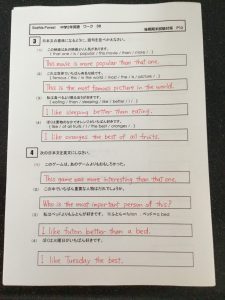 Sophia Forest 中学2年英語 ワーク 38 後期期末試験対策 P10
3 日本文の意味になるように、語句を並べかえなさい。
(1) この映画はあの映画より人気があります。
( that one / is / popular / this movie / than / more / . )
This movie is more popular than that one.
(2) これは世界でいちばん有名な絵です。
This is the most famous picture in the world.
(3) 私は食べるより眠るほうが好きです。
( eating / than / sleeping / like / better / I / . )
I like sleeping better than eating.
(4) ぼくは果物のなかでオレンジがいちばん好きです。
( like / of all fruits / I / the best / oranges / . )
I like oranges the best of all fruits.
4 次の日本文を英文にしなさい。
(1) このゲームは、あのゲームよりおもしろかった。
This game was more interesting than that one.
(2) この中でいちばん重要な人物はだれでしょうか。
Who is the most important person of this?
(3) 私はベッドよりもふとんが好きです。 ※ふとん=futon ベッド=a bed
I like futon better than a bed.
(4) ぼくは火曜日がいちばん好きです。
I like Tuesday the best.